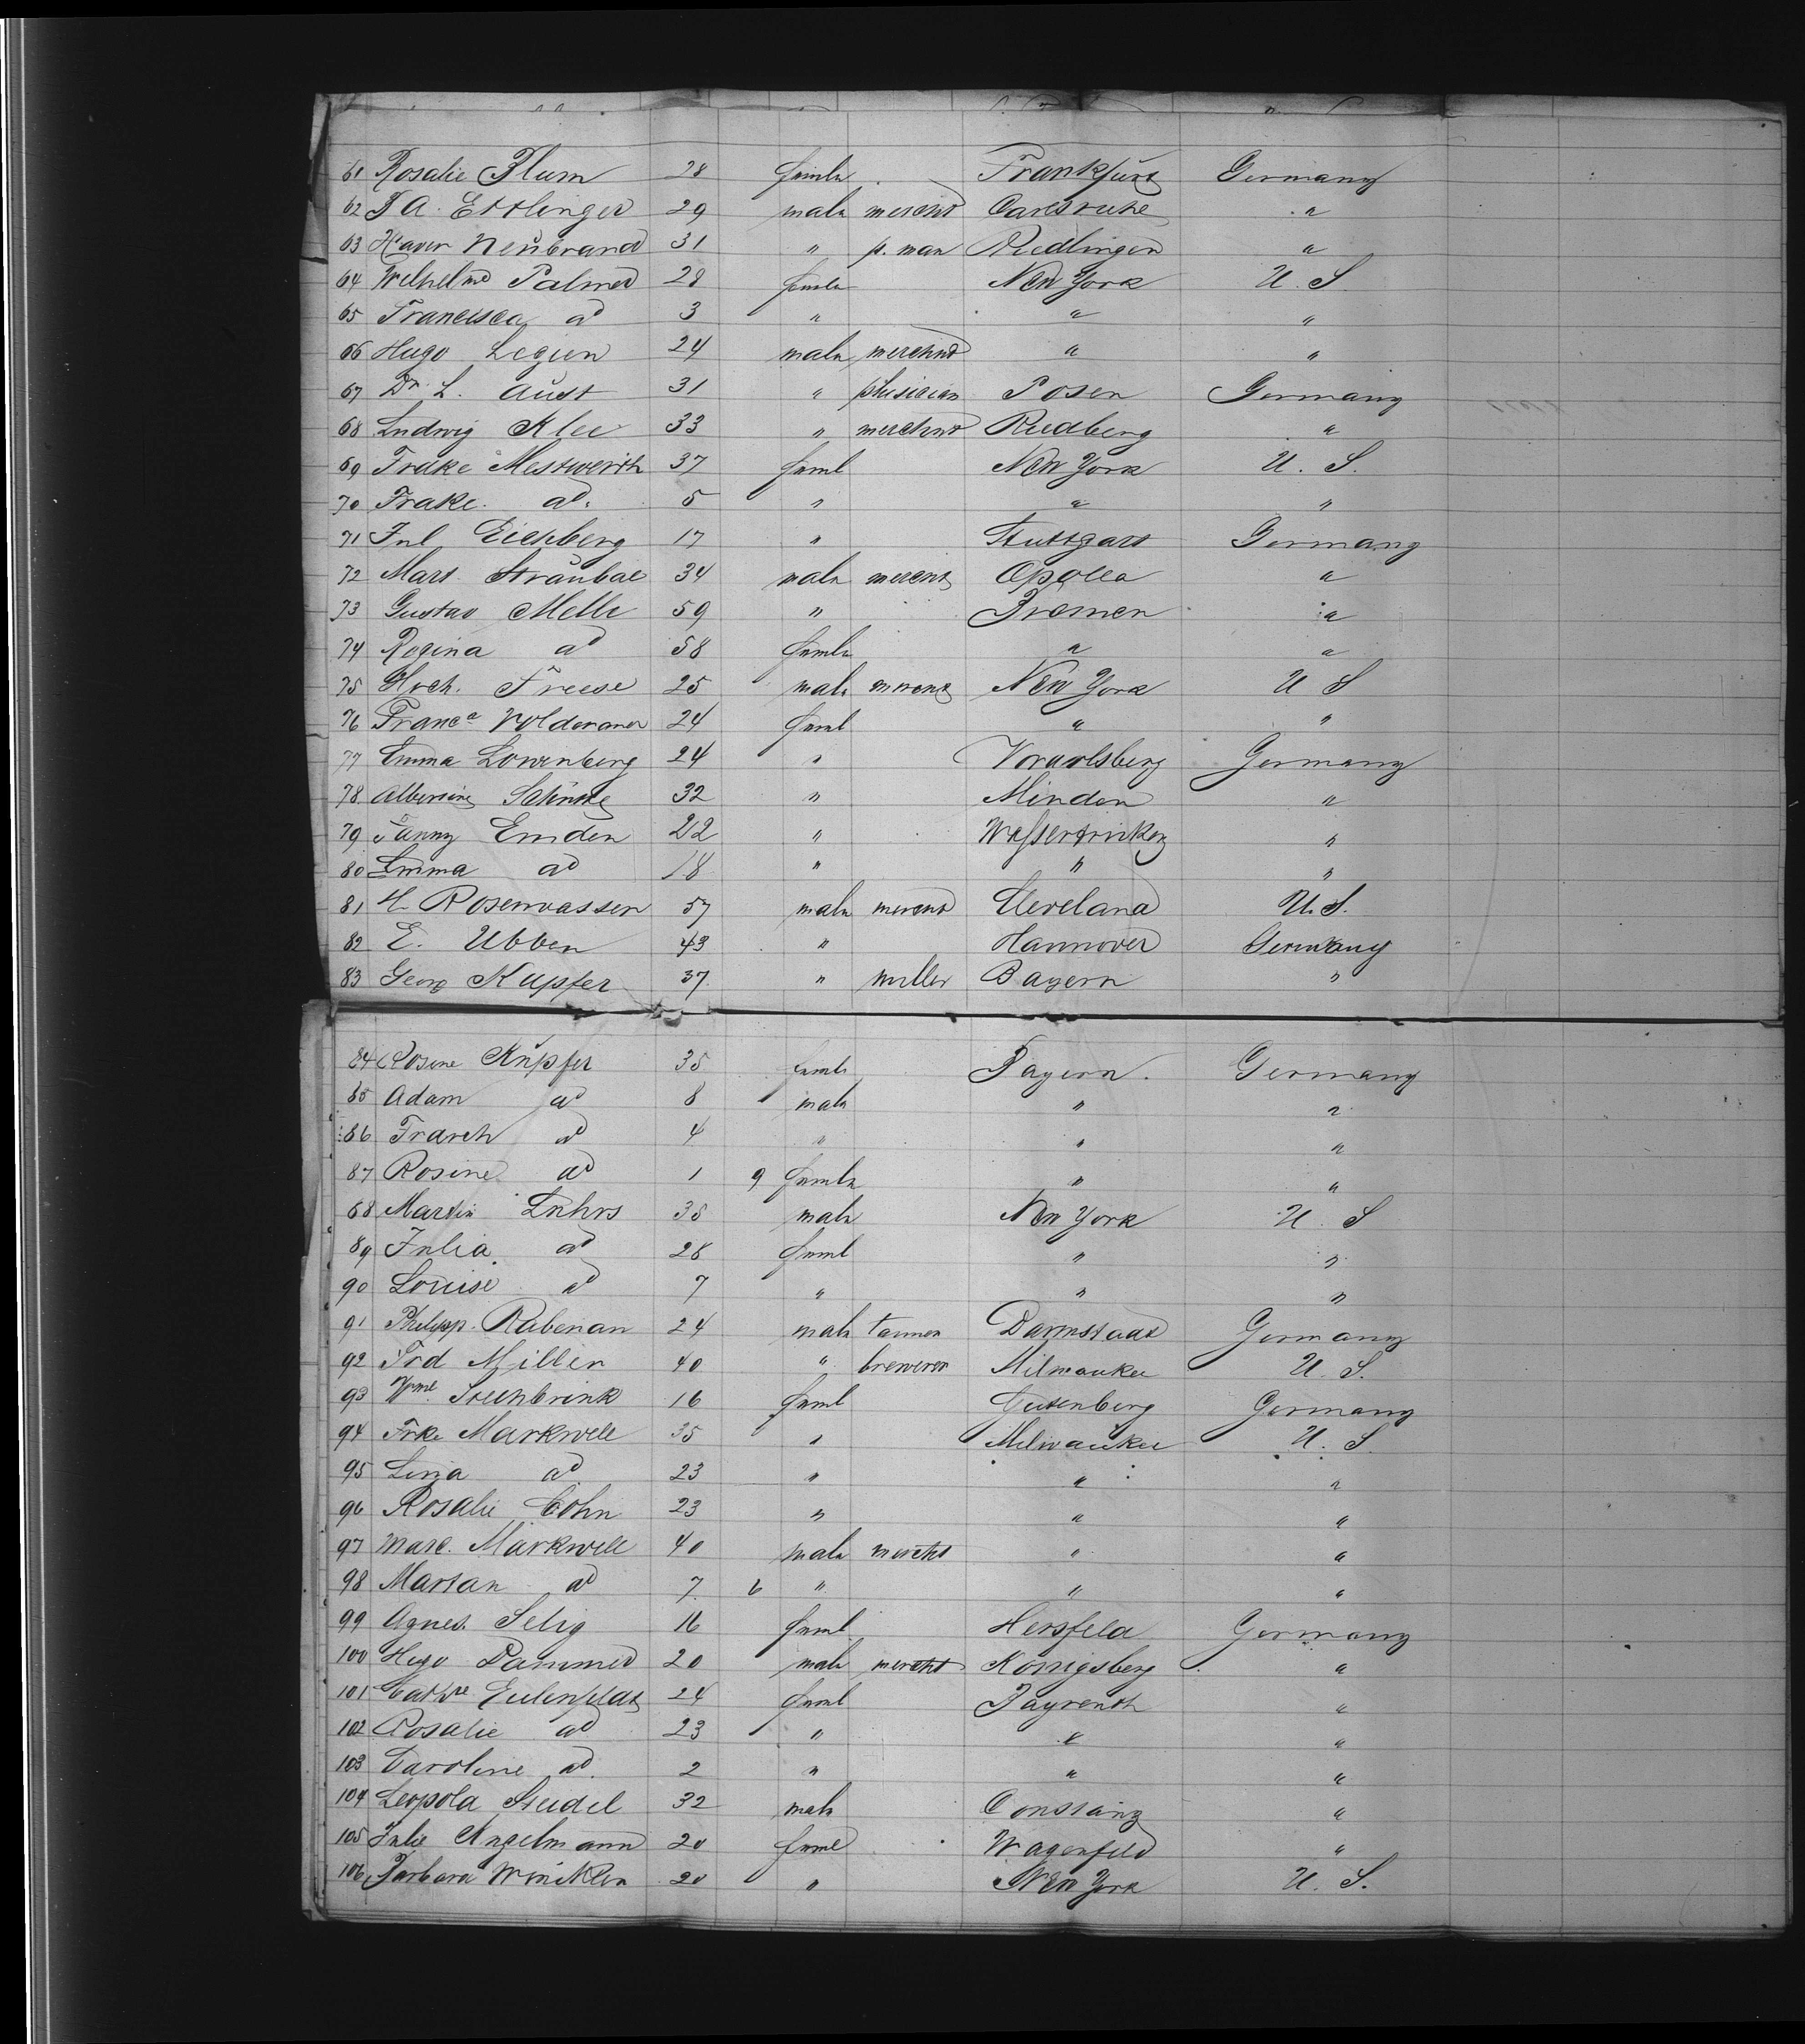 61 Rosalie Blum 28 female Frankfurt Germany
62 J A. Ettlinger 29 male merchnt Carlsruhe "
63 Xaver Neubrand 31 " p. man Riedlingen "
64 Wilhelme Palmer 28 female New York U. S.
65 Francisca do 3 " " "
66 Hugo Legien 24 male merchnt " "
67 Dr. L. Aust 31 " phisician Posen Germany
68 Ludwig Klee 33 " merchnt Riedberg "
69 Fredke Mestwerth 37 feml New York U. S.
70 Frake. do. 5 " " "
71 Jul Eichberg 17 " Stuttgart Germany
72 Mart. Straubal 34 male mercnt Apolla "
73 Gustav Melle 59 " Bremen "
74 Regina do 58 female " "
75 Hrch. Freese 25 male mercnt New York U S
76 Franca 24 feml " "
77 Emma Lowenberg 24 " Vorarlsberg Germany
78 Albertine 32 " Minden "
79 Fanny Emden 22 " "
80 Emma do 18 " " "
81 H. Rosenwasser 57 male mercnt Cleveland U. S.
82 E. Ubben 43 " Hannover Germany
83 Georg Kupfer 37 " miller Bayern "
84 Rosine Kupfer 35 female Bayern. Germany
85 Adam do 8 male " "
86 do 4 " " "
87 Rosine do 1 9 female " "
88 Martin Luhrs 38 male New York U. S
89 Julia do 28 feml " "
90 Louise do 7 " " "
91 Philipp. Rabenau 24 male tanner Darmstadt Germany
92 Frd Miller 40 " brewerer Milwaukee U. S.
93 Wme. Steenbrink 16 feml Gutenberg Germany
94 Frke Markwell 35 " Milwaukee U. S.
95 Lina do 23 " " "
96 Rosalie Cohn 23 " " "
97 Marc. Markwell 40 male mercht " "
98 Martan do 7 6 " " "
99 Agnes. Selig 16 feml Hersfeld Germany
100 Hugo Dammer 20 male merchnt Königsberg "
101 Cathne 24 feml Bayreuth "
102 Rosalie do 23 " " "
103 Caroline do. 2 " " "
104 Leopold Steidel 32 male Constanz "
105 Julie Angelmann 20 feml Wagenfeld "
106 Barbara Winklen 20 " New York U. S.